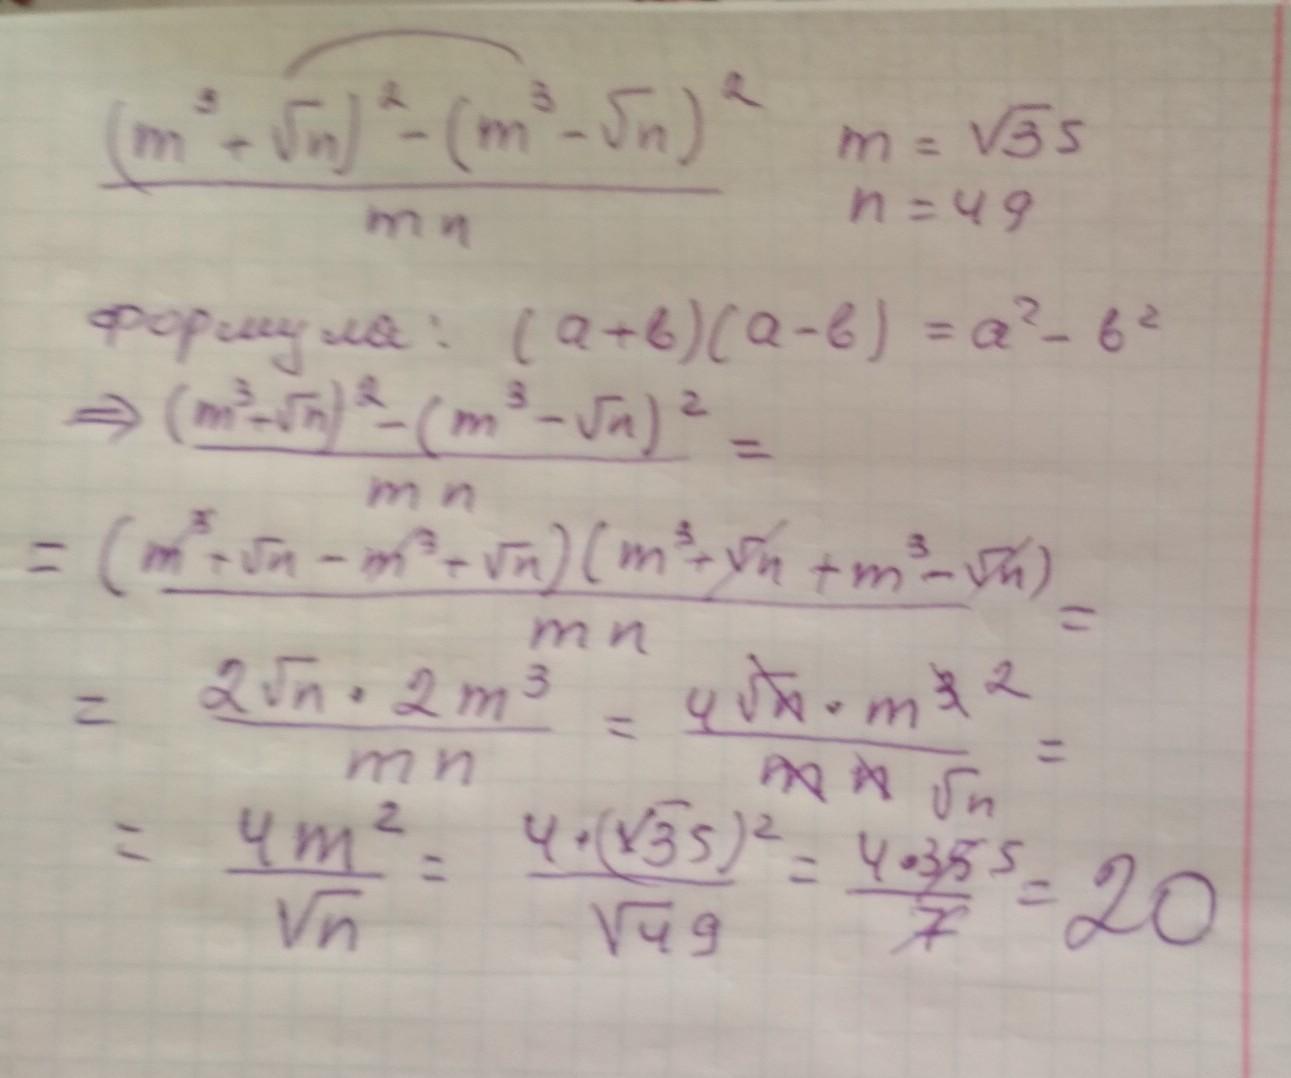 (m³ + √n)² - (m³ - √n)² / mn   m = √35
n = 49
формула: (a+b)(a-b) = a² - b²
⇒ (m³-√n)² - (m³ - √n)² / mn =
= (m³+√n - m³+√n)(m³+√n + m³-√n) / mn =
= 2√n · 2m³ / mn = 4√n · m³ ² / m n √n =
= 4m² / √n = 4·(√35)² / √49 = 4·35 5 / 7 = 20